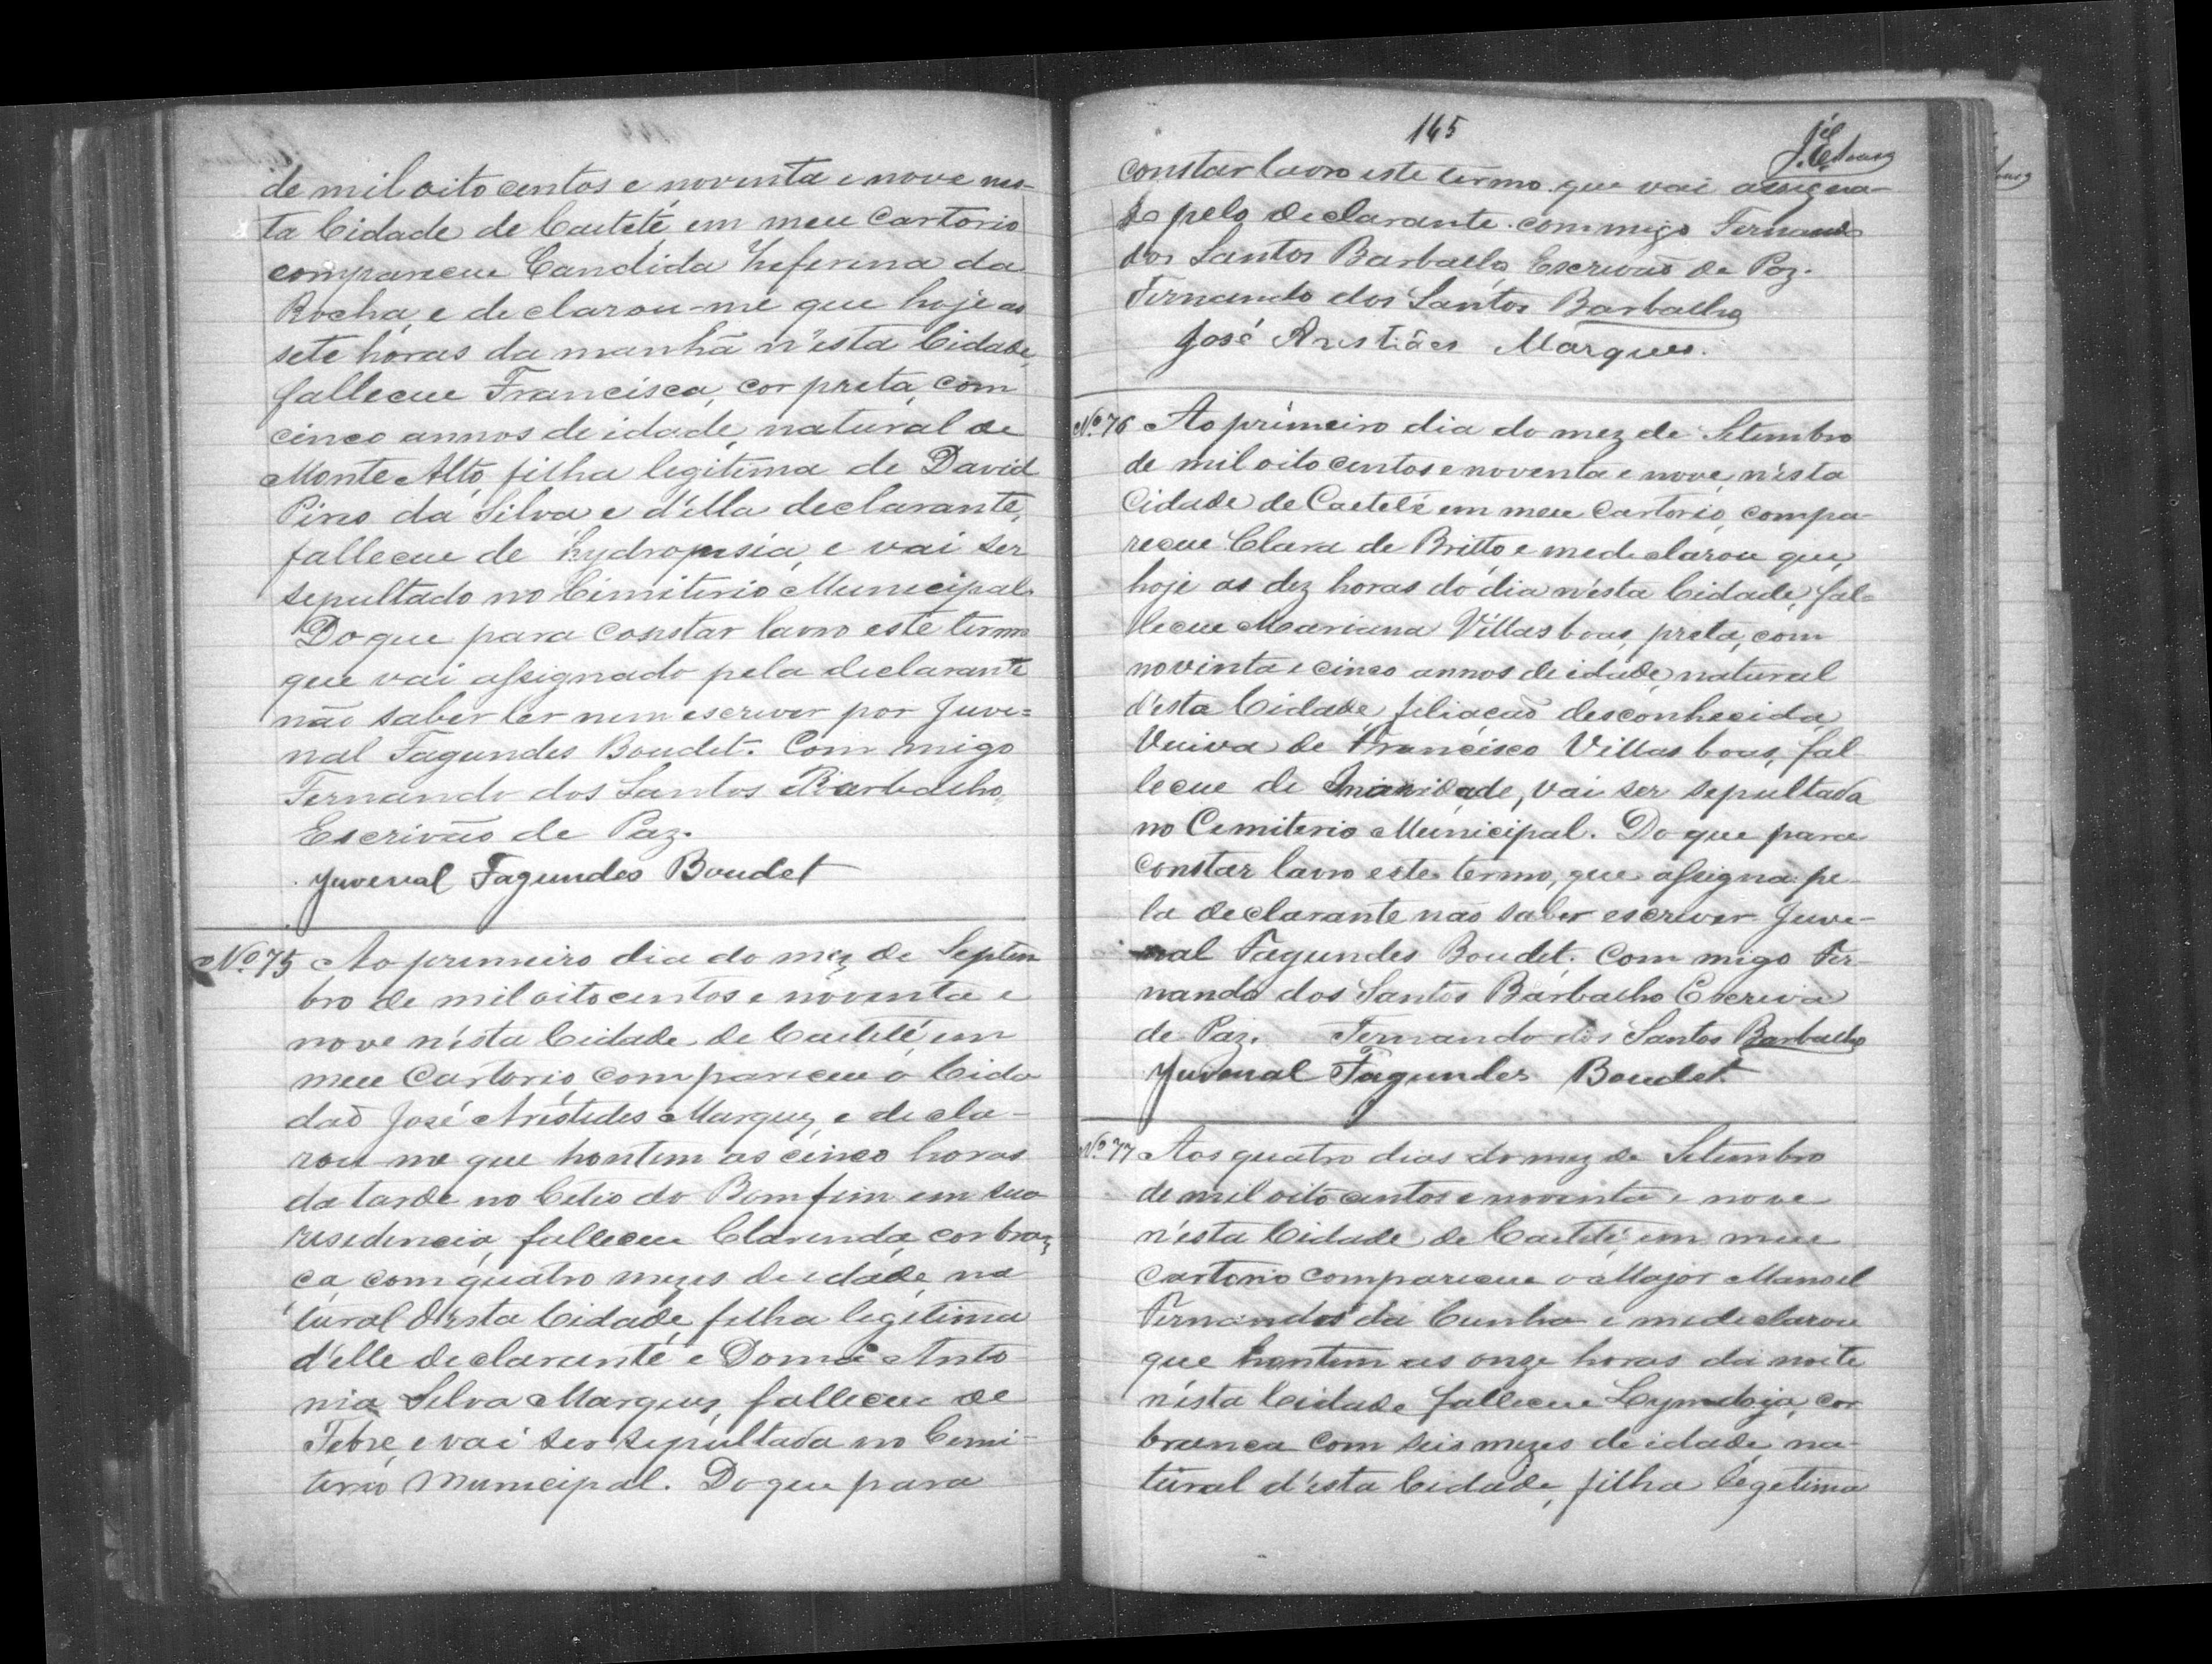 de mil oito centos e noventa e nove nes-
ta Cidade de Caeteté em meu Cartorio
compareceu Candida Zeferina da
Rocha, e declarou-me que hoje as
sete horas da manhã n'esta Cidade,
falleceu Francisca, cor preta, com
cinco annos de idade, natural de
Monte Alto, filha legitima de David
Pires da Silva e d'ella declarante,
falleceu de hydropesia, e vai ser
sepultado no Cimiterio Municipal.
Do que para constar lavro este termo
que vai assignado pela declarante
não saber ler nem escrever por Juve=
nal Fagundes Boudet. Commigo
Fernando dos Santos Barbalho,
Escrivão de Paz.
Juvenal Fagundes Boudet
Nº 75 Ao primeiro dia do mez de Septem
bro de mil oitocentos e noventa e
nove n'ésta Cidade de Caeteté, em
meu Cartorio, compareceu o Cida
dão José Aristides Marques, e decla-
rou-me que hontem as cinco horas
da tarde no Citio do Bomfim em sua
residencia, falleceu Clarinda, cor bran
ca, com quatro mezes de idade, na
tural d'ésta Cidade, filha legitima
d'elle declarante e Dona Anto
nia Silva Marques, falleceu de
Febre, e vai ser sepultada no Cemi-
terio Municipal. Do que para
145
constar lavro este termo que vai assigna-
do pelo declarante. commigo Fernando
dos Santos Barbalho, Escrivão de Paz.
Fernando dos Santos Barbalho
José Aristides Marques.
Nº 76 Ao primeiro dia do mez de Setembro
de mil oito centos e noventa e nove, n'ésta
Cidade de Caeteté em meu Cartorio, compa-
receu Clara de Britto e me declarou que,
hoje as dez horas do dia n'ésta Cidade, fal=
leceu Mariana Villasboas, preta, com
noventa e cinco annos de idade, natural
d'ésta Cidade, filiação desconhecida,
Veuva de Francisco Villasboas, fal
leceu de , vai ser sepultada
no Cemiterio Municipal. Do que para
constar lavro este termo, que assigna pe-
la declarante não saber escrever Juve-
nal Fagundes Boudet. Commigo Fer-
nando dos Santos Barbalho Escriva
de Paz. Fernando dos Santos Barbalho
Juvenal Fagundes Boudet
Nº 77 Aos quatro dias do mez de Setembro
de mil oito centos e noventa e nove
n'ésta Cidade de Caeteté, em meu
Cartorio compareceu o Major Manoel
Fernandes da Cunha e me declarou
que hontem as onze horas da noite
n'ésta Cidade falleceu Lyndoja, cor
branca com seis mezes de idade, na-
tural d'ésta Cidade, filha legetima